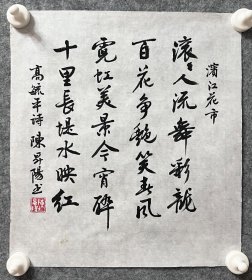 濱江花市
滾滾人流舞彩龍
百花争艷笑春風
霓虹美景今宵醉
十里長堤水映紅
高毓平詩 陳昇陽書